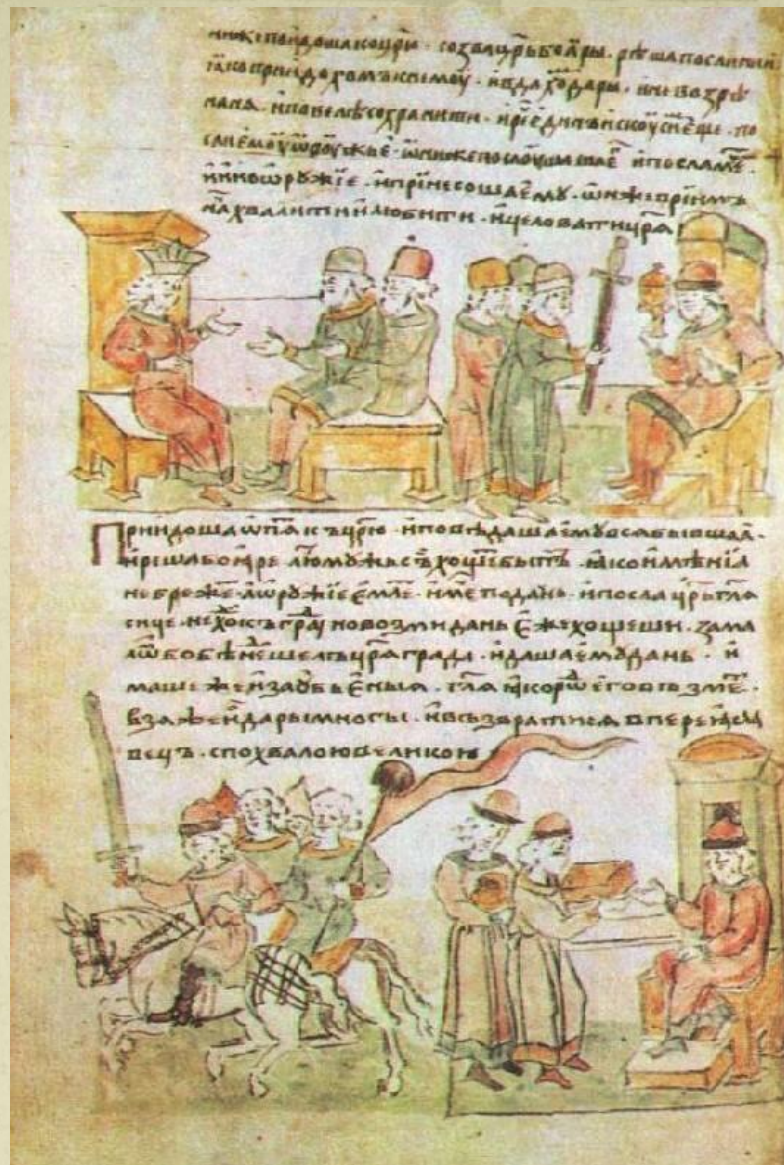 ѡниже поидоша ко црю · созва црь боѧры · рѣша посланнии
ꙗко приидохомъ к немоу · и вдахо дары · и не возрѣ
на нѧ · и повелѣ сохранити · и рече единъ искоуси еще · по
сли емоу ѡроужье · ѡни же послоушаша его и послаша
и ино ѡружїе · и принесоша емоу · ѡн же приимъ
нача хвалити и любити · и целовати црѧ
Приидоша ѡпѧ к црю · и повѣдаша ему всѧ бывшаа ·
и рѣша боѧре лю мужь с хощеть быть · ꙗко имѣнїа
небреже · а ѡружїе емле · имѣ по дань · и посла црь глѧ
сице · не хо къ граду но возми дань еже хощеши · за ма
лѡ бо бѣ не шелъ црѧграда · и даша ему дань · и
маше же и за убьеныѧ · глѧ ꙗко рѡ его возме ·
взѧ же и дары многы · и възвратисѧ в переꙗсла
вець · с похвалою великою